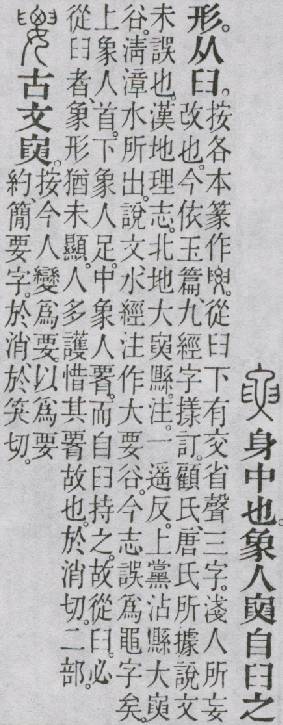 身中也。象人𦥼自𦥑之
形。从𦥑。
按各本篆作從𦥑下有交省聲三字。淺人所妄
改也。今依玉篇、九經字樣訂。顧氏、唐氏所據說文
未誤也。漢地理志。北地大𦥼縣。注。一遥反。上黨沾縣大𦥼
谷。淸漳水所出。說文、水經注作大要谷。今志誤爲黽字矣。
上象人首。下象人足。中象人而自𦥑持之。故從𦥑。必
從𦥑者、象形猶未顯。人多護惜其故也。於消切。二部。
古文𦥼。
按今人變爲要以爲要
約、簡要字。於消於笑切。